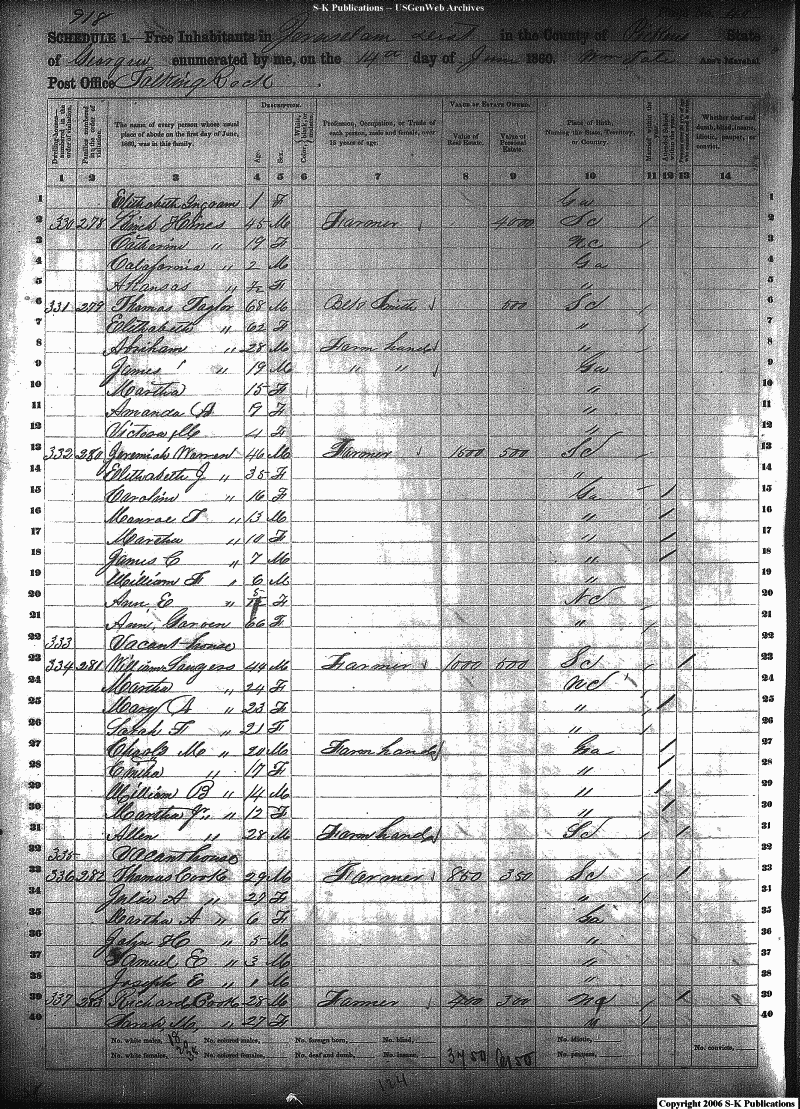 S-K Publications -- USGenWeb Archives
918 Page No. 40
SCHEDULE 1.—Free Inhabitants in Jerusalem Dist in the County of Pickens State
of Georgia enumerated by me, on the 14th day of June 1860. Wm Tate Ass't Marshal
Post Office Talking Rock
DESCRIPTION. VALUE OF ESTATE OWNED.
Dwelling-houses numbered in the order of visitation. Families numbered in the order of visitation. The name of every person whose usual place of abode on the first day of June, 1860, was in this family. Age. Sex. Color, White, black, or mulatto. Profession, Occupation, or Trade of each person, male and female, over 15 years of age. Value of Real Estate. Value of Personal Estate. Place of Birth, Naming the State, Territory, or Country. Married within the year. Attended School within the year. Whether deaf and dumb, blind, insane, idiotic, pauper, or convict.
1 2 3 4 5 6 7 8 9 10 11 12 13 14
1 Elithabeth Ingram 1 F Ga 1
2 330 278 Hines 45 M Farmer 4000 Sc 2
3 Catharine " 19 F Nc 3
4 Calafornia " 2 M Ga 4
5 Arkansas " F " 5
6 331 279 Thomas Taylor 68 M Smith 500 Sc 6
7 Elithabeth " 62 F " 7
8 Abriham " 28 M Farm hand " 8
9 James " 19 M " " Ga 9
10 Martha 15 F " 10
11 Amanda A 9 F " 11
12 4 F " 12
13 332 280 Jeremiah Warrent 46 M Farmer 1500 500 Sc 13
14 Elithabeth J " 35 F " 14
15 Caroline " 16 F Ga / 15
16 Monroe T " 13 M " / 16
17 Martha " 10 F " / 17
18 James C " 7 M " / 18
19 William F " 6 M " 19
20 Ann E " F NC 20
21 Ann Garven 66 F " 21
22 333 Vacant house 22
23 334 281 William 44 M Farmer 1000 500 Sc / 23
24 Martha " 24 F NC 24
25 Mary A " 23 F " / 25
26 Sarah F " 21 F " 26
27 M " 20 M Farm hand Ga / 27
28 " 17 F " / 28
29 William B " 14 M " / 29
30 Martha J " 12 F " / 30
31 Allen " 28 M Farm hand Sc / 31
32 335 Vacant house 32
33 336 282 Thomas Cook 29 M Farmer 850 350 Sc / 33
34 Julia A " 29 F " 34
35 Martha A " 6 F Ga 35
36 John H " 5 M " 36
37 Samuel E " 3 M " 37
38 Joseph E " 1 M " 38
39 337 283 Richard Cook 28 M Farmer 400 300 / 39
40 Sarah M, " 27 F 40
No. white males, 18 No. colored males, No. foreign born, No. blind, No. idiotic, No. convicts,
No. white females, 20 No. colored females, No. deaf and dumb, No. insane, 3750 No. paupers,
38
124
Copyright 2006 S-K Publications